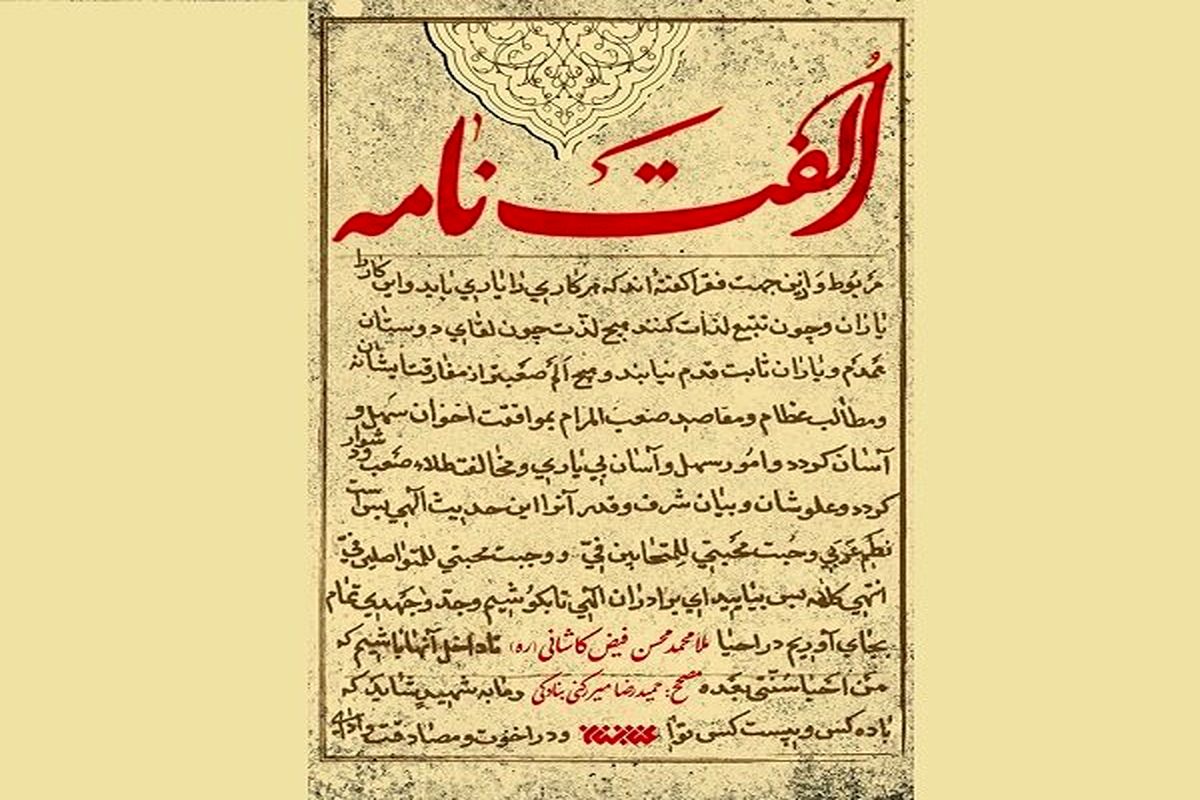 اُلفت نامه
مربوط و ازین جهت فقرا گفته‌اند که هر کاری را یاری باید و این کار را
یاران و چون تتبّع لذّات کنند هیچ لذّت چون لقای دوستان
همدم و یاران ثابت قدم نیابند و هیچ اَلَم صَعبتر از مفارقت ایشان نه
و مطالب عظام و مقاصد صعب المرام بموافقت اخوان سهل و
آسان گردد و امور سهل و آسان بی یاری و مخالفت صَعب و دشوار
گردد و علوّشان و بیان شرف و قدر آنرا این حدیث الهی بس است
نظم عربی وجبت محبّتی للمتحابین فیّ و وجبت محبتی للمتواصلین فیّ
انتهی کلامه بس بیایید ای برادران الهی تا بکوشیم و جدّ و جهدی تمام
بجای آوریم در احیا ملامحمدمحسن فیض کاشانی (ره) تا داخل آنها باشیم که
من احیا سُنّتی بعده مصحح: حمیدرضا میررکنی بنادکی و مابه شهید شاید که
یا ده کس و بیست کس توا و در اخوّت و مصادقت و